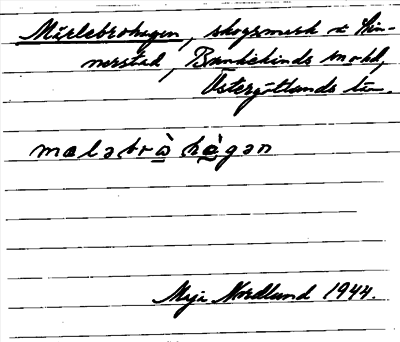 Mårlebrohagen, skogsmark i Hin-
nerstad, Bankekinds snhd,
Östergötlands län.
mɷləbrὼhàgan
Maja Nordlund 1944.